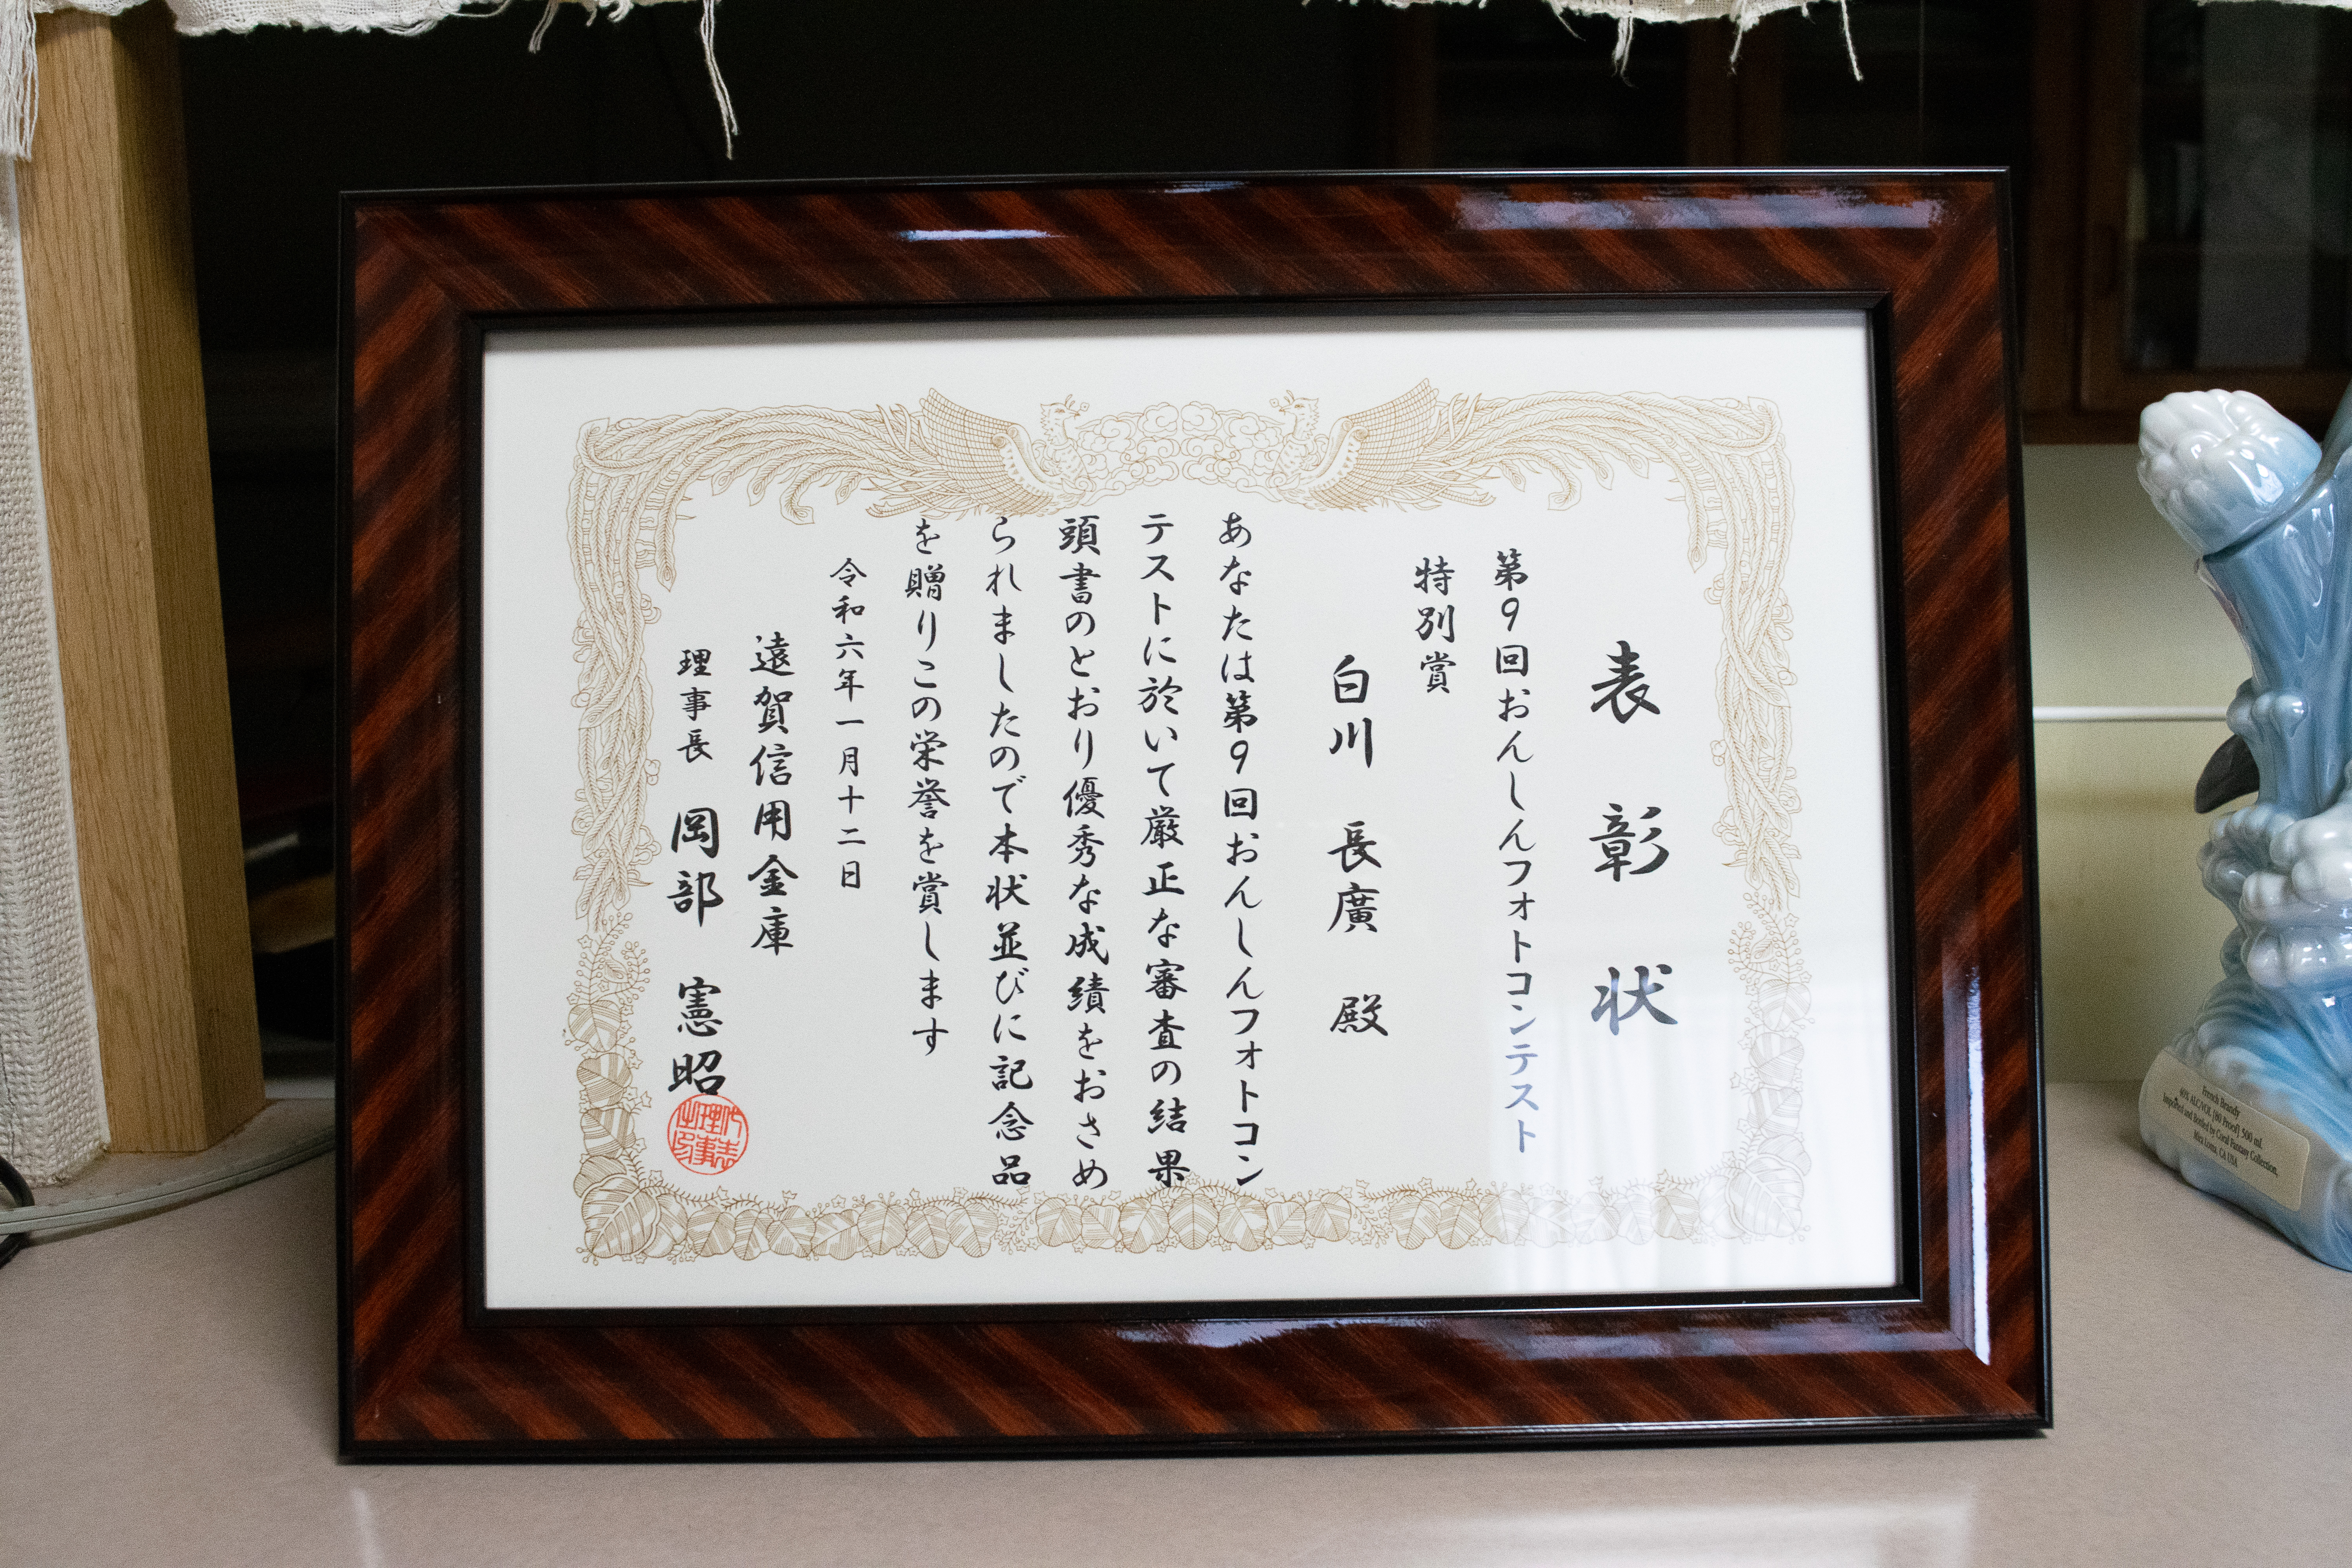 表彰状
第9回おんしんフォトコンテスト
特別賞
白川 長廣 殿
あなたは第9回おんしんフォトコン
テストに於いて厳正な審査の結果
頭書のとおり優秀な成績をおさめ
られましたので本状並びに記念品
を贈りこの栄誉を賞します
令和六年一月十二日
遠賀信用金庫
理事長 岡部 憲昭
French Brandy
40% ALC/VOL (80 Proof) 500 ml.
Imported and Bottled by Coral Fantasy Collection,
Mira Loma, CA USA